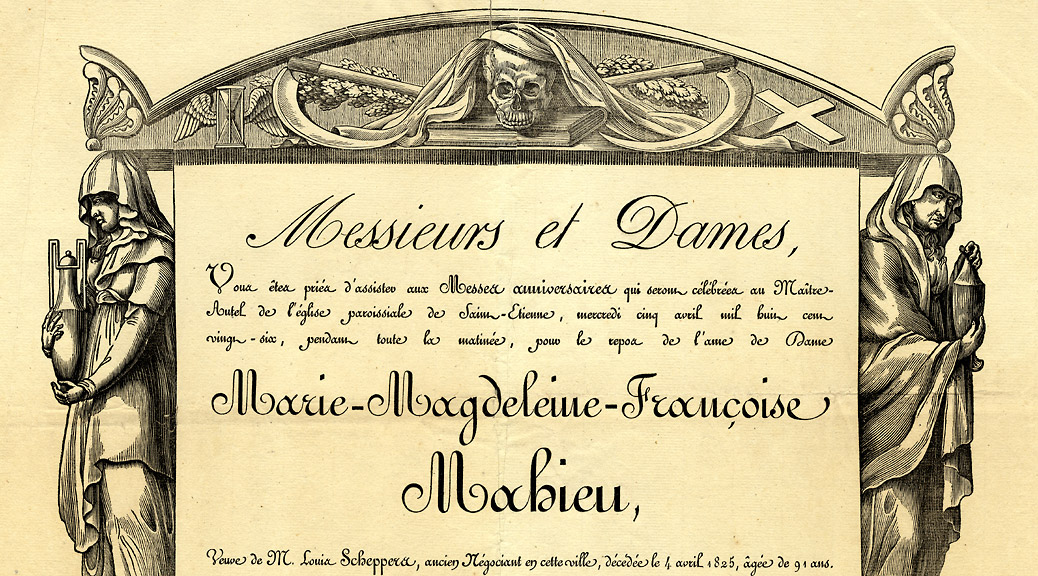 Messieurs et Dames,
Vous êtes priés d'assister aux Messes anniversaires qui seront célébrées au Maître-
Autel de l'église paroissiale de Saint-Etienne, mercredi cinq avril mil huit cent
vingt-six, pendant toute la matinée, pour le repos de l'ame de Dame
Marie-Magdeleine-Françoise
Mahieu,
Veuve de M. Louis Scheppers, ancien Négociant en cette ville, décédée le 4 avril 1825, âgée de 91 ans.